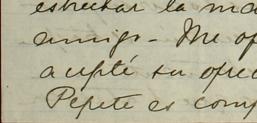 estrechar la ma
amigo - Me of
acepté su ofrec
Pepete es comp